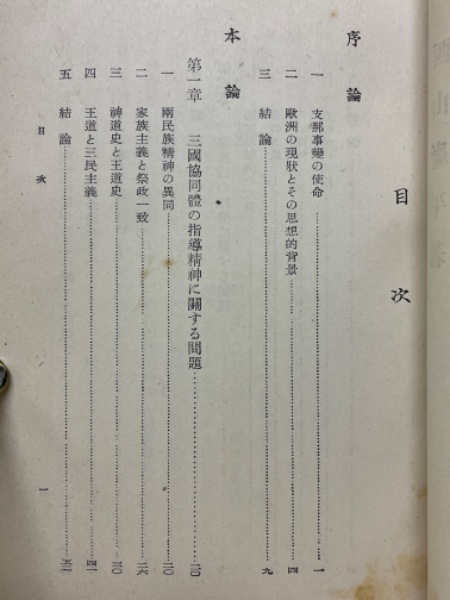 目次
序論
一 支那事變の使命……一
二 歐洲の現狀とその思想的背景……四
三 結論……九
本論
第一章 三國協同體の指導精神に關する問題……二〇
一 兩民族精神の異同……二〇
二 家族主義と祭政一致……二六
三 神道史と王道史……三〇
四 王道と三民主義……四一
五 結論
目次 一